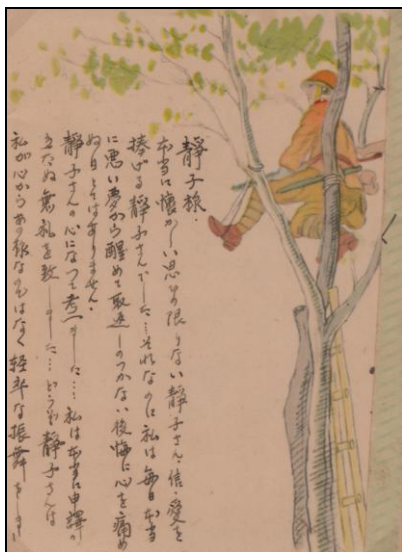 靜子様、
本当に懐かしい思ひの限りない靜子さん、信愛を
捧げる靜子さんでした…それなのに私は毎日本当
に悪い夢から醒めて取返しのつかない後悔に心を痛め
ぬ日とてはありません、
靜子さんの心になつて考へました…私は本当に申譯の
立たぬ無礼を致しました…どうぞ靜子さんは
私が心からあの様なのではなく軽卒な振舞をしまし